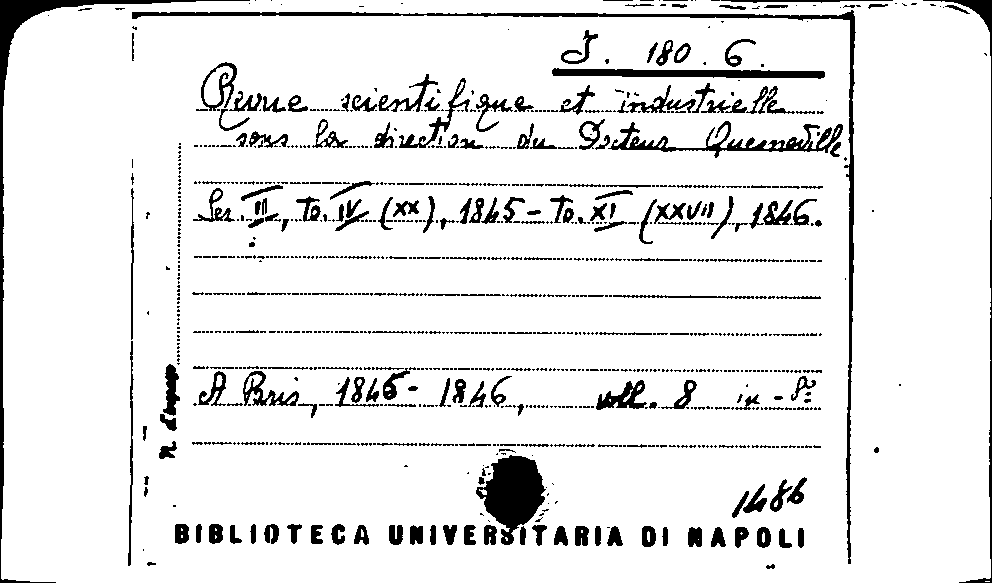 J. 180. 6.
Revue scientifique et industrielle
sous la direction du Docteur Quesneville.
Ser. III, To. IV (XX), 1845 - To. XI (XXVII), 1846.
A Paris, 1845 - 1846, voll. 8 in - 8º
N. d'ingresso
1486
BIBLIOTECA UNIVERSITARIA DI NAPOLI